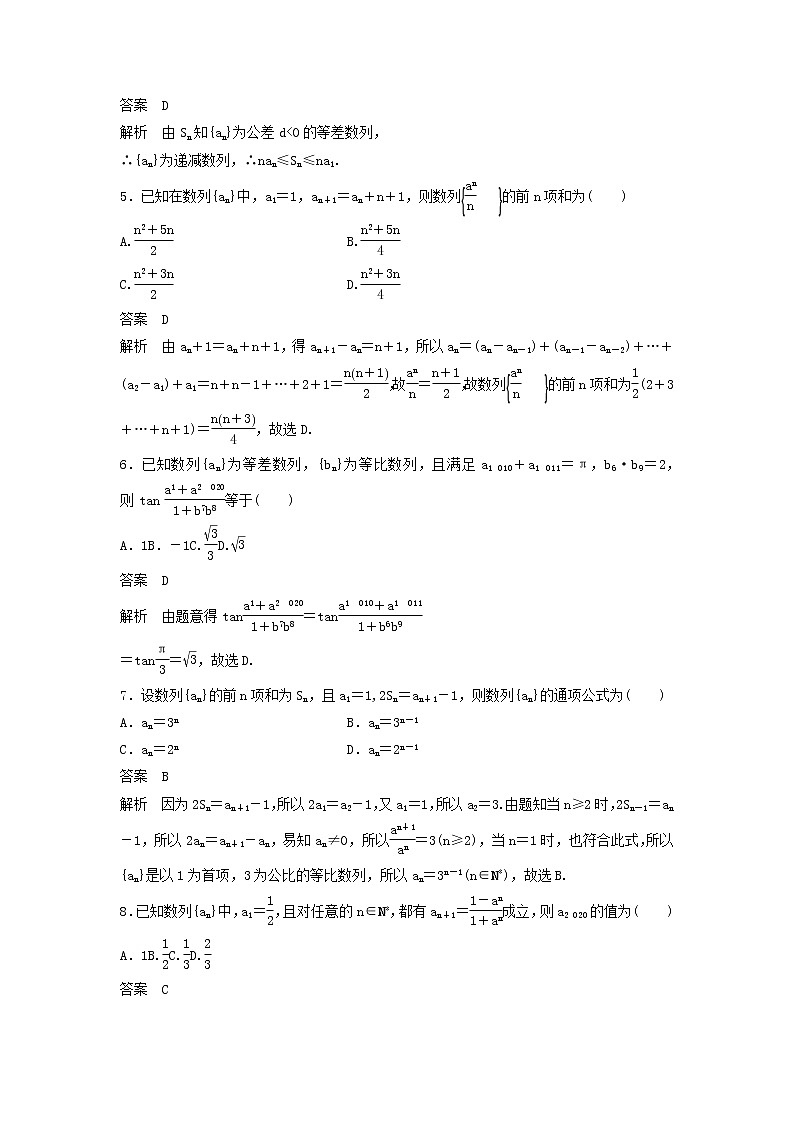 答案　D
解析　由 Sₙ知{aₙ}为公差 d<0 的等差数列，
∴{aₙ}为递减数列，∴naₙ≤Sₙ≤na₁.
5．已知在数列{aₙ}中，a₁＝1，aₙ₊₁＝aₙ＋n＋1，则数列{aⁿ/n}的前 n 项和为(　　)
A.(n²＋5n)/2　　B.(n²＋5n)/4
C.(n²＋3n)/2　　D.(n²＋3n)/4
答案　D
解析　由 aₙ＋1＝aₙ＋n＋1，得 aₙ₊₁－aₙ＝n＋1，所以 aₙ＝(aₙ－aₙ₋₁)＋(aₙ₋₁－aₙ₋₂)＋…＋
(a₂－a₁)＋a₁＝n＋n－1＋…＋2＋1＝n(n＋1)/2，故aⁿ/n＝(n＋1)/2，故数列{aⁿ/n}的前 n 项和为1/2(2＋3
＋…＋n＋1)＝n(n＋3)/4，故选 D.
6．已知数列{aₙ}为等差数列，{bₙ}为等比数列，且满足 a₁ ₀₁₀＋a₁ ₀₁₁＝π，b₆·b₉＝2，
则 tan (a¹＋a² ⁰²⁰)/(1＋b⁷b⁸)等于(　　)
A．1B．－1C.√3/3D.√3
答案　D
解析　由题意得 tan(a¹＋a² ⁰²⁰)/(1＋b⁷b⁸)＝tan(a¹ ⁰¹⁰＋a¹ ⁰¹¹)/(1＋b⁶b⁹)
＝tanπ/3＝√3，故选 D.
7．设数列{aₙ}的前 n 项和为 Sₙ，且 a₁＝1,2Sₙ＝aₙ₊₁－1，则数列{aₙ}的通项公式为(　　)
A．aₙ＝3ⁿ　　B．aₙ＝3ⁿ⁻¹
C．aₙ＝2ⁿ　　D．aₙ＝2ⁿ⁻¹
答案　B
解析　因为 2Sₙ＝aₙ₊₁－1，所以 2a₁＝a₂－1，又 a₁＝1，所以 a₂＝3.由题知当 n≥2 时，2Sₙ₋₁＝aₙ
－1，所以 2aₙ＝aₙ₊₁－aₙ，易知 aₙ≠0，所以aⁿ⁺¹/aⁿ＝3(n≥2)，当 n＝1 时，也符合此式，所以
{aₙ}是以 1 为首项，3 为公比的等比数列，所以 aₙ＝3ⁿ⁻¹(n∈N*)，故选 B.
8．已知数列{aₙ}中，a₁＝1/2，且对任意的 n∈N*，都有 aₙ₊₁＝(1－aⁿ)/(1＋aⁿ)成立，则 a₂ ₀₂₀的值为(　　)
A．1B.1/2C.1/3D.2/3
答案　C